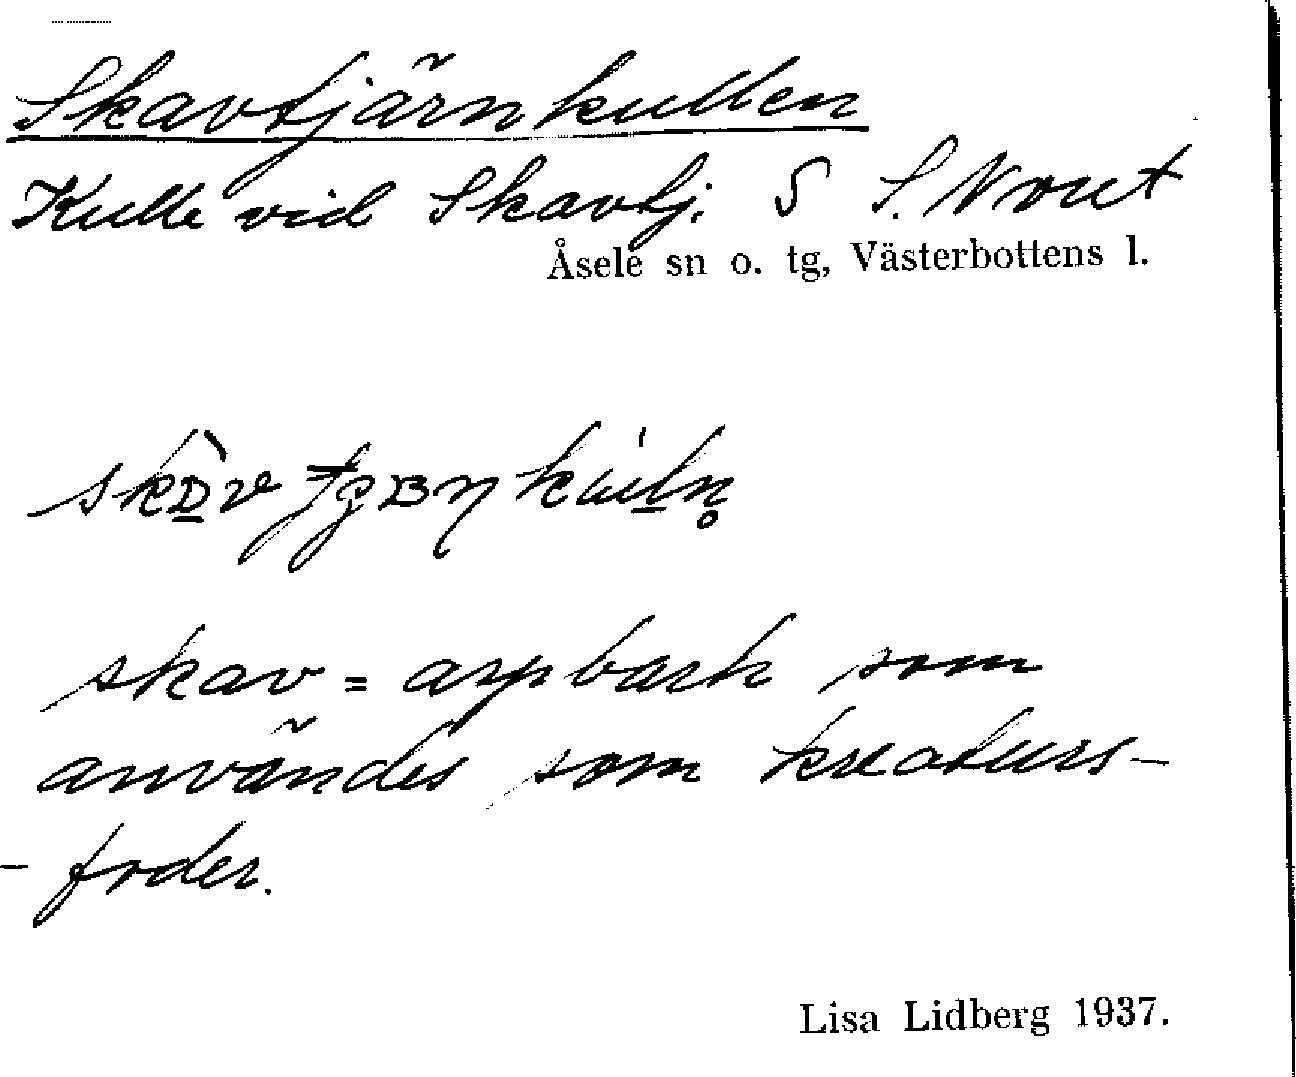 Skavtjärnkullen
Kulle vid Skavtj. S S. Nout
Åsele sn o. tg, Västerbottens l.
skav = aspbark som
användes som kreaturs-
- foder.
Lisa Lidberg 1937.